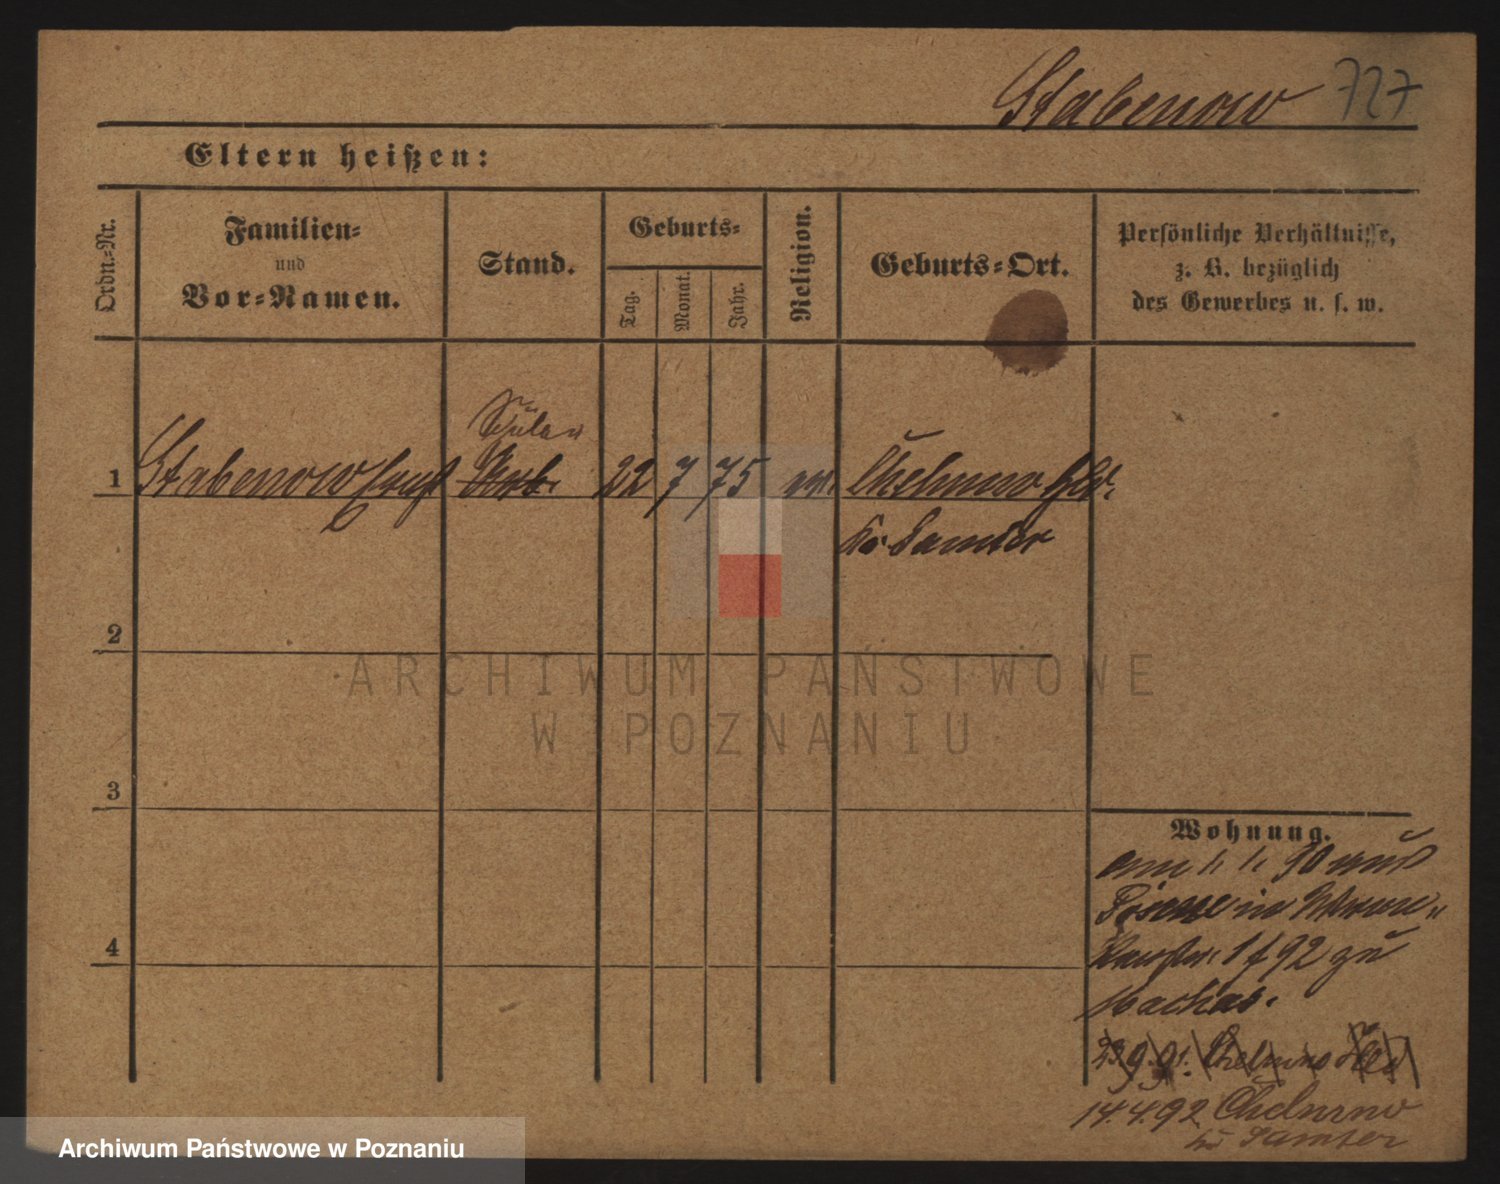 Stabenow 727
Eltern heißen:
Ordn.-Nr.
Familien-
und
Vor-Namen.
Stand.
Geburts-
Tag.
Monat.
Jahr.
Religion.
Geburts-Ort.
Persönliche Verhältnisse,
z. B. bezüglich
des Gewerbes u. s. w.
1 Stabenow 22 7 75 Chelmno
Kr. Samter
2
3
4
Wohnung.
90
in
92 zu
23.9.91. Chelmno
14.4.92 Chelmno
Samter
ARCHIWUM PAŃSTWOWE
W POZNANIU
Archiwum Państwowe w Poznaniu